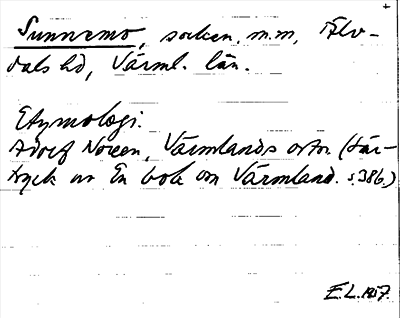 Sunnemo, socken m.m, Älv-
dals hd, Värml. län.
Etymologi.
Adolf Noreen, Värmlands ortn. (sär-
tryck ur En bok om Värmland. s. 386.)
E.L. 1917.